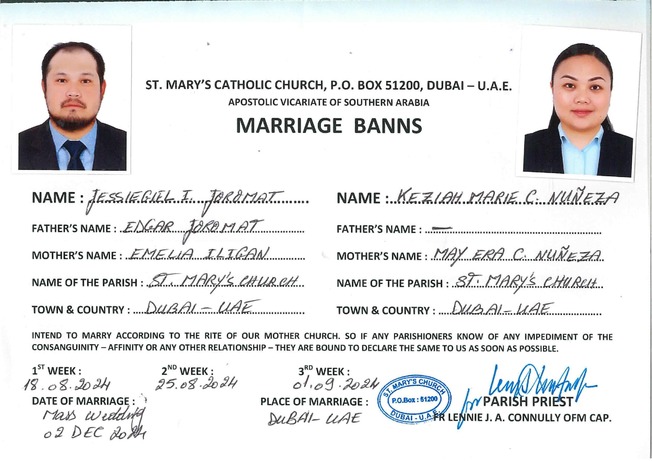 ST. MARY'S CATHOLIC CHURCH, P.O. BOX 51200, DUBAI – U.A.E.
APOSTOLIC VICARIATE OF SOUTHERN ARABIA
MARRIAGE BANNS
NAME : JESSIEGIEL I. JOROMAT
FATHER'S NAME : EDGAR JOROMAT
MOTHER'S NAME : EMELIA ILIGAN
NAME OF THE PARISH : ST. MARY'S CHURCH
TOWN & COUNTRY : DUBAI – UAE
NAME : KEZIAH MARIE C. NUÑEZA
FATHER'S NAME : —
MOTHER'S NAME : MAY ERA C. NUÑEZA
NAME OF THE PARISH : ST. MARY'S CHURCH
TOWN & COUNTRY : DUBAI – UAE
INTEND TO MARRY ACCORDING TO THE RITE OF OUR MOTHER CHURCH. SO IF ANY PARISHIONERS KNOW OF ANY IMPEDIMENT OF THE
CONSANGUINITY – AFFINITY OR ANY OTHER RELATIONSHIP – THEY ARE BOUND TO DECLARE THE SAME TO US AS SOON AS POSSIBLE.
1ST WEEK : 2ND WEEK : 3RD WEEK :
18.08.2024 25.08.2024 01.09.2024
DATE OF MARRIAGE :
Mass Wedding
02 DEC 2024
PLACE OF MARRIAGE :
DUBAI- UAE
ST. MARY'S CHURCH
P.O.Box : 51200
DUBAI - U.A.E.
for PARISH PRIEST
FR LENNIE J. A. CONNULLY OFM CAP.